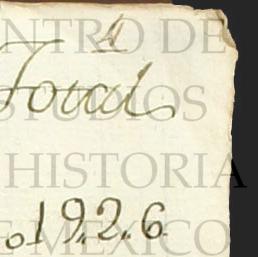 1
NTRO DE
Total
STUDIOS
HISTORIA
o 19,,2,,6.
E MÉXICO